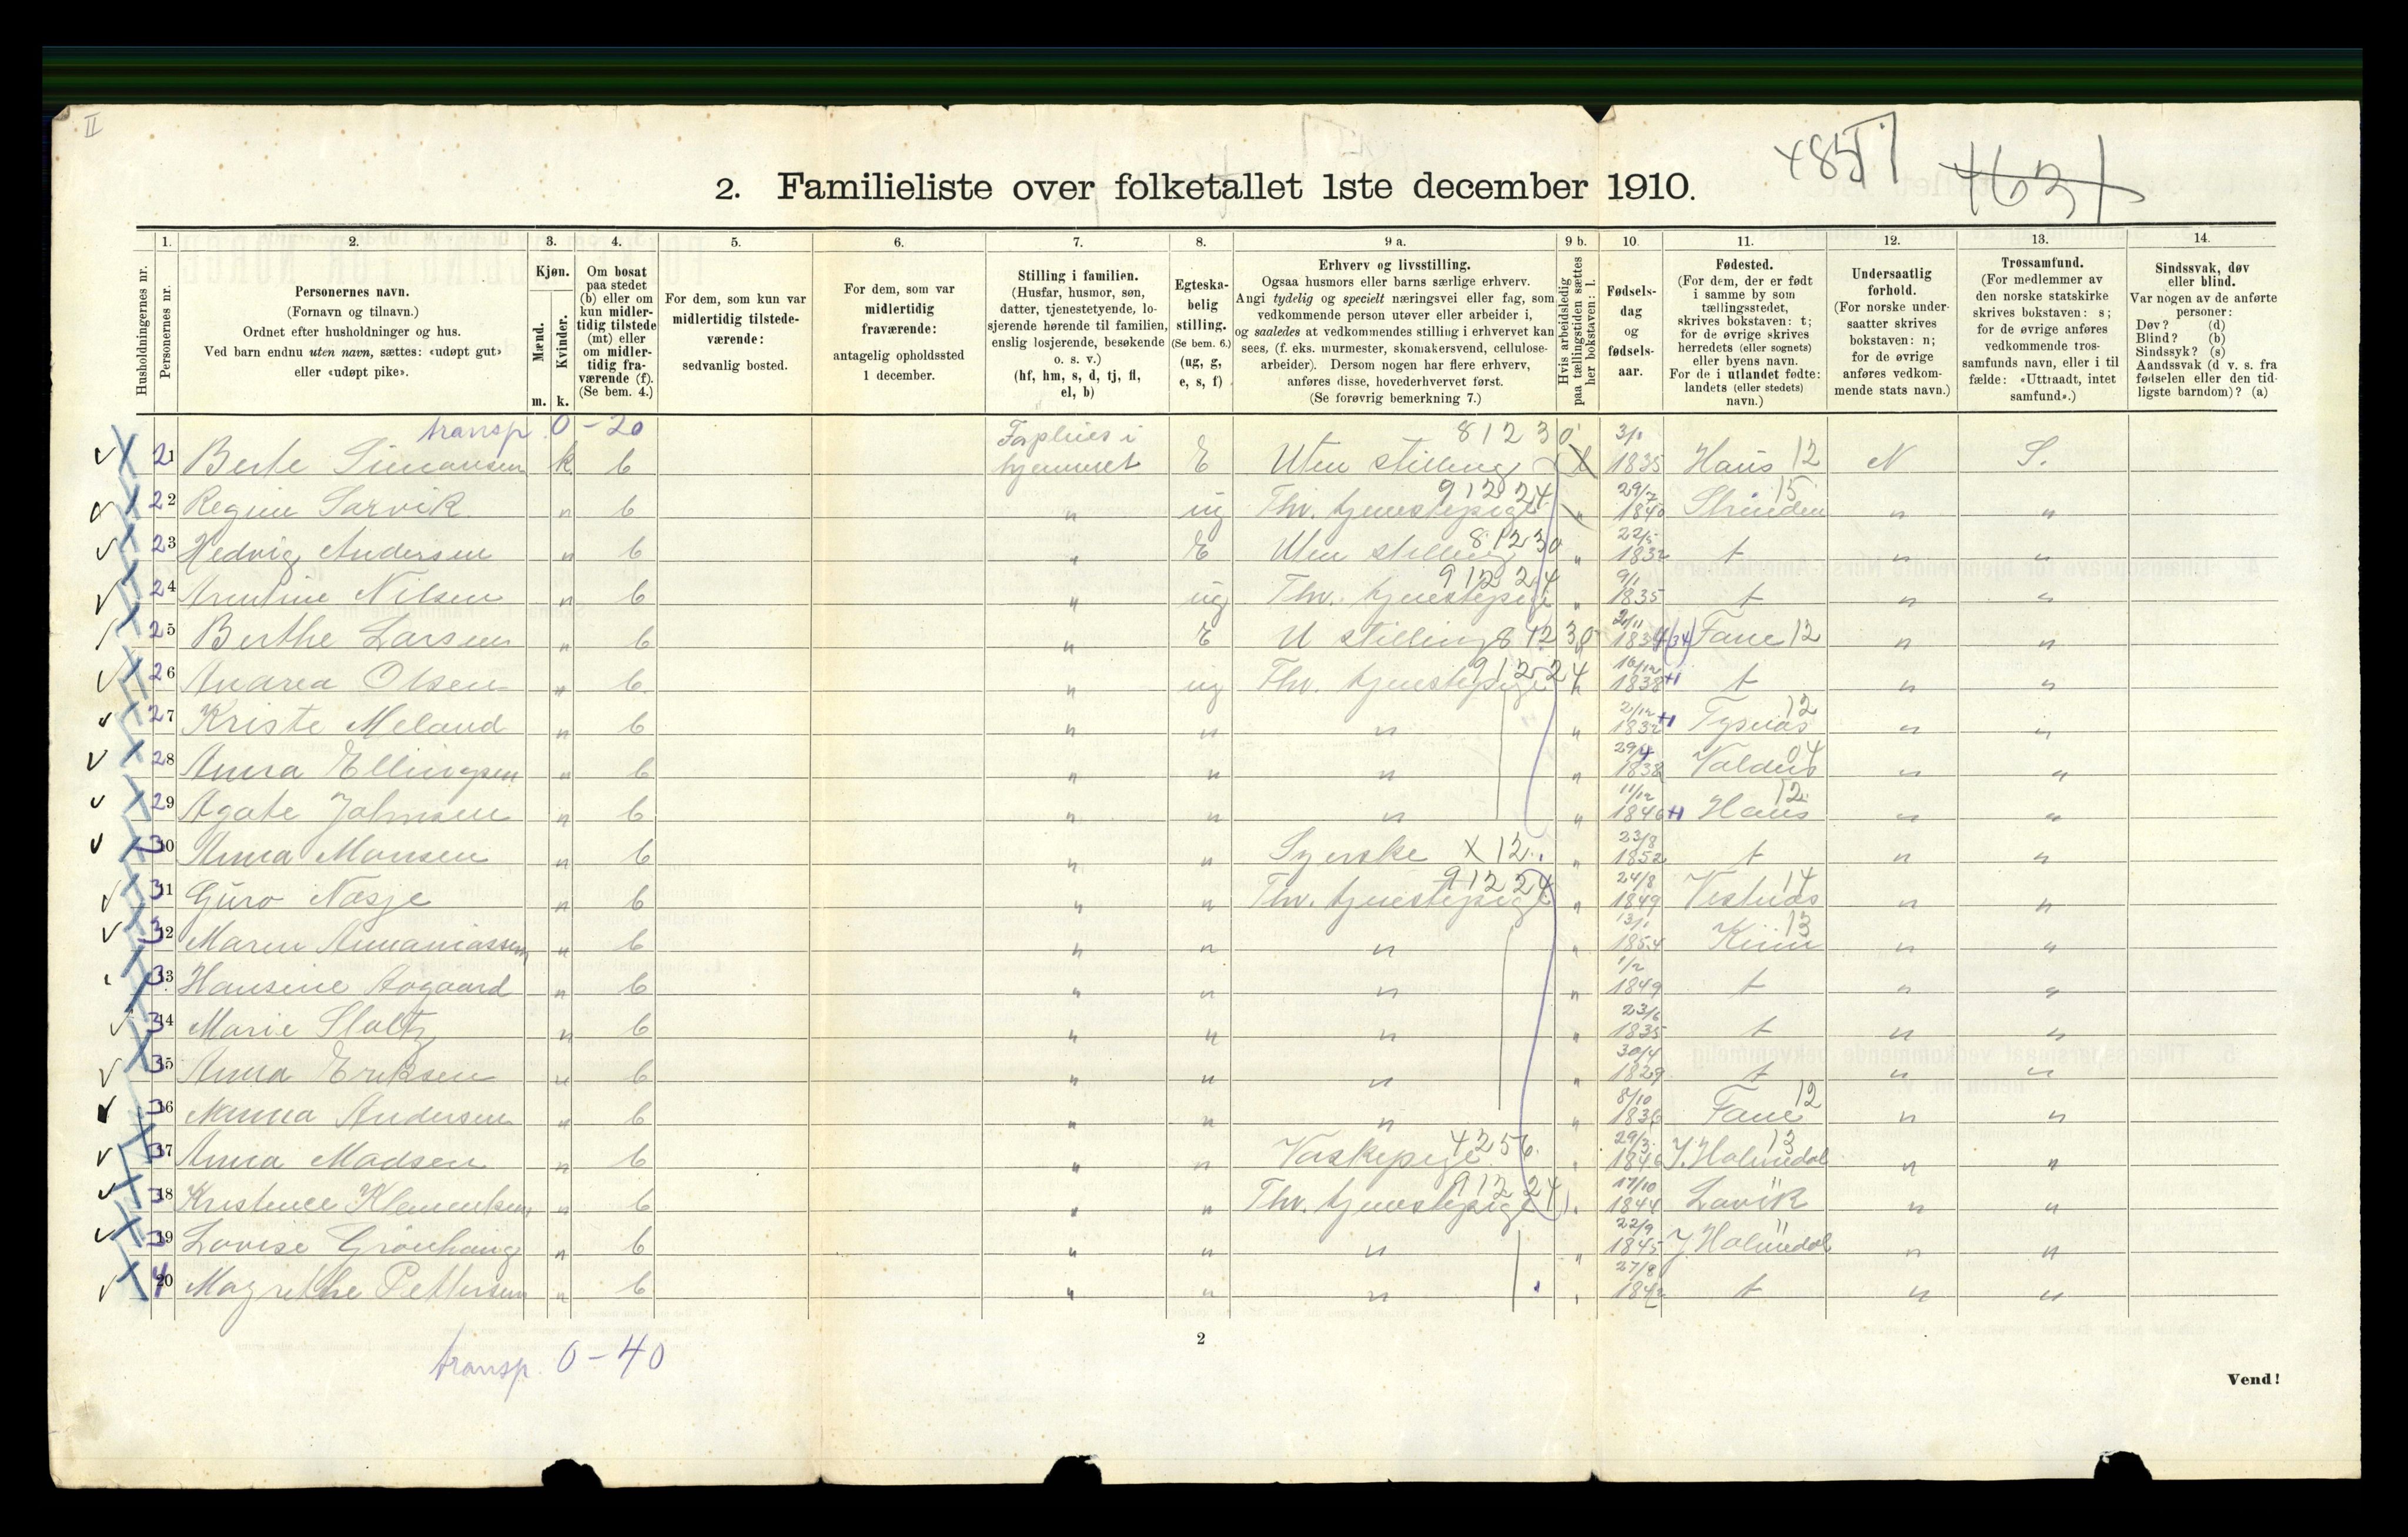 II
485
463
2. Familieliste over folketallet 1ste december 1910.
Husholdningernes nr.
1. Personernes nr.
2. Personernes navn. (Fornavn og tilnavn.) Ordnet efter husholdninger og hus. Ved barn endnu uten navn, sættes: «udøpt gut» eller «udøpt pike».
3. Kjøn. Mænd. m. Kvinder. k.
4. Om bosat paa stedet (b) eller om kun midlertidig tilstede (mt) eller om midlertidig fraværende (f). (Se bem. 4.)
5. For dem, som kun var midlertidig tilstedeværende: sedvanlig bosted.
6. For dem, som var midlertidig fraværende: antagelig opholdssted 1 december.
7. Stilling i familien. (Husfar, husmor, søn, datter, tjenestetyende, losjerende hørende til familien, enslig losjerende, besøkende o. s. v.) (hf, hm, s, d, tj, fl, el, b)
8. Egteskabelig stilling. (Se bem. 6.) (ug, g, e, s, f)
9 a. Erhverv og livsstilling. Ogsaa husmors eller barns særlige erhverv. Angi tydelig og specielt næringsvei eller fag, som vedkommende person utøver eller arbeider i, og saaledes at vedkommendes stilling i erhvervet kan sees, (f. eks. murmester, skomakersvend, cellulosearbeider). Dersom nogen har flere erhverv, anføres disse, hovederhvervet først. (Se forøvrig bemerkning 7.)
9 b. Hvis arbeidsledig paa tællingstiden sættes her bokstaven: l.
10. Fødselsdag og fødselsaar.
11. Fødested. (For dem, der er født i samme by som tællingsstedet, skrives bokstaven: t; for de øvrige skrives herredets (eller sognets) eller byens navn. For de i utlandet fødte: landets (eller stedets) navn.)
12. Undersaatlig forhold. (For norske undersaatter skrives bokstaven: n; for de øvrige anføres vedkommende stats navn.)
13. Trossamfund. (For medlemmer av den norske statskirke skrives bokstaven: s; for de øvrige anføres vedkommende trossamfunds navn, eller i tilfælde: «Uttraadt, intet samfund».)
14. Sindssvak, døv eller blind. Var nogen av de anførte personer: Døv? (d) Blind? (b) Sindssyk? (s) Aandssvak (d v. s. fra fødselen eller den tidligste barndom)? (a)
transp. 0-20
21 Berte Simonsen k b Forpleies i hjemmet E Uten stilling 81230 l 3/1 1835 Haus 12 N S.
22 Regine Sarvik " b " ug Thv. tjenestepige 91224 " 29/7 1840 Strinden 15 " "
23 Hedvig Andersen " b " E Uten stilling 81230 " 22/5 1832 t " "
24 Arentine Nilsen " b " ug Thv. tjenestepige 91224 " 9/1 1835 t " "
25 Berthe Larsen " b " E U stilling 81230 21/11 1834 (34) Fane 12 " "
26 Anarea Olsen " b " ug Thv. tjenestepige 91224 " 16/12 1838 t " "
27 Kriste Meland " b " " " " 2/12 1832 Tysnæs 12 " "
28 Anna Ellingsen " b " " " " 29/4 1838 Valders 04 " "
29 Agate Johnsen " b " " " " 11/12 1846 Haus 12 " "
30 Anna Monsen " b " " Syerske X12 " 23/8 1852 t " "
31 Guro Næsje " b " " Thv. tjenestepige 91224 " 24/8 1849 Vestnæs 14 " "
32 Maren Annaniassen " b " " " " 13/1 1854 Kinn 13 " "
33 Hansine Aagaard " b " " " " 1/2 1849 t " "
34 Marie Stoltz " b " " " " 23/6 1835 t " "
35 Anna Eriksen " b " " " " 30/4 1829 t " "
36 Nanna Andersen " b " " " " 8/10 1836 Fane 12 " "
37 Anna Madsen " b " " Vaskepige 4256 " 29/3 1846 J. Holmedal 13 " "
38 Kristence Klementsen " b " " Thv. tjenestepige 91224 " 17/10 1844 Lavik " "
39 Lovise Grönhaug " b " " " " 22/9 1845 J. Holmedal " "
40 Magrethe Pettersen " b " " " " 27/8 1842 t " "
transp. 0-40
2
Vend!